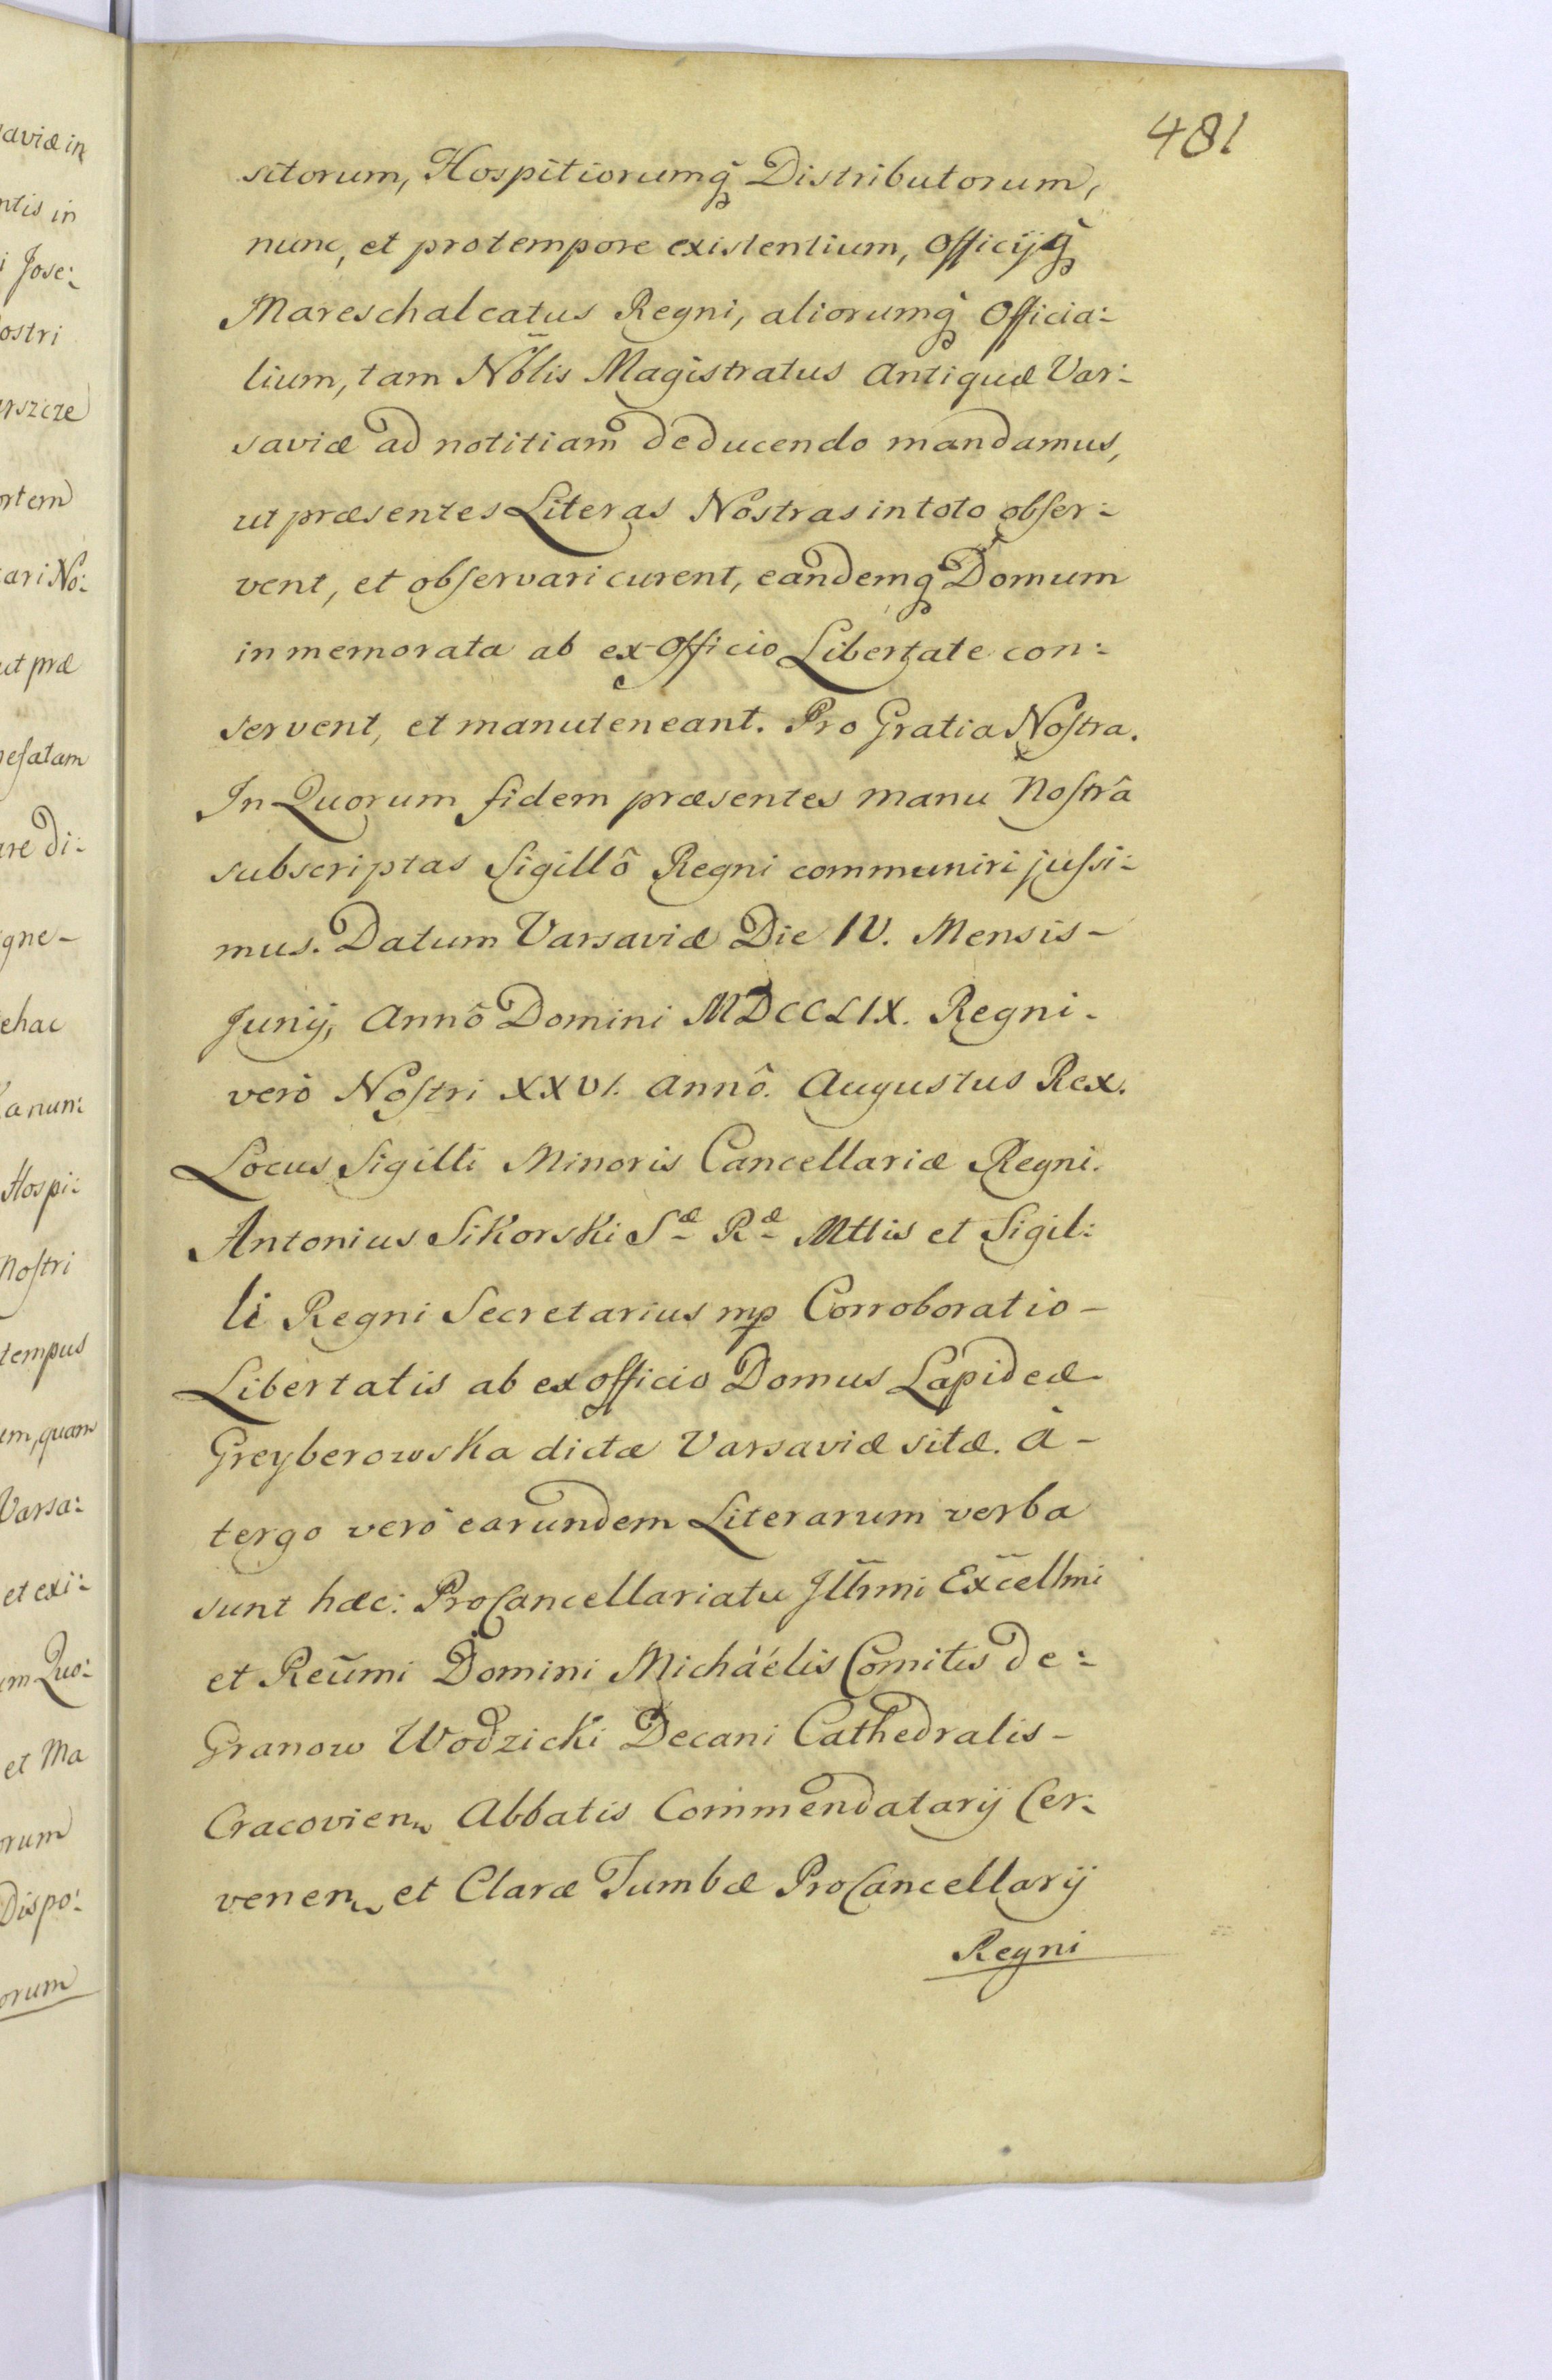 481
sitorum, Hospitiorumq̃ Distributorum,
nunc, et protempore existentium, Officijq̃
Mareschalcatus Regni, aliorumq̃ Officia:
lium, tam Nõlis Magistratus Antiquæ Var:
saviæ ad notitiam deducendo mandamus,
ut præsentes Literas Nostras in toto obſer:
vent, et obſervari curent, eandemq̃ Domum
in memorata ab ex Officio Libertate con:
servent, et manuteneant. Pro Gratia Noſtra.
In Quorum fidem præsentes manu Noſtrâ
subscriptas Sigillô Regni communiri juſsi:
mus. Datum Varsaviæ Die IV. Mensis-
Junij, Annô Domini MDCCLIX. Regni-
verò Noſtri XXVI. annô. Augustus Rex.
Locus Sigilli Minoris Cancellariæ Regni.
Antonius Sikorski Sæ Ræ Mttis et Sigil:
li Regni Secretarius mp Corroboratio-
Libertatis ab ex officio Domus Lapideæ
Greyberowska dictæ Varsaviæ sitæ. à-
tergo verò earundem Literarum verba
sunt hæc: ProCancellariatu Jllmi Excellmi
et Reũmi Domini Michäélis Comitis de:
Granow Wodzicki Decani Cathedralis-
Cracovien, Abbatis Commendatarij Cer:
venen, et Claræ Tumbæ ProCancellarij
Regni
aviæ in
ntis in
i Jose:
ostri
rszcze
ortem
tari No:
ut præ
nefatam
are di:
gne-
ehac
anum:
Hospi:
noſtri
tempus
um, quam
Varsa:
et exi:
um Quo:
et Ma
orum
Dispo:
orum